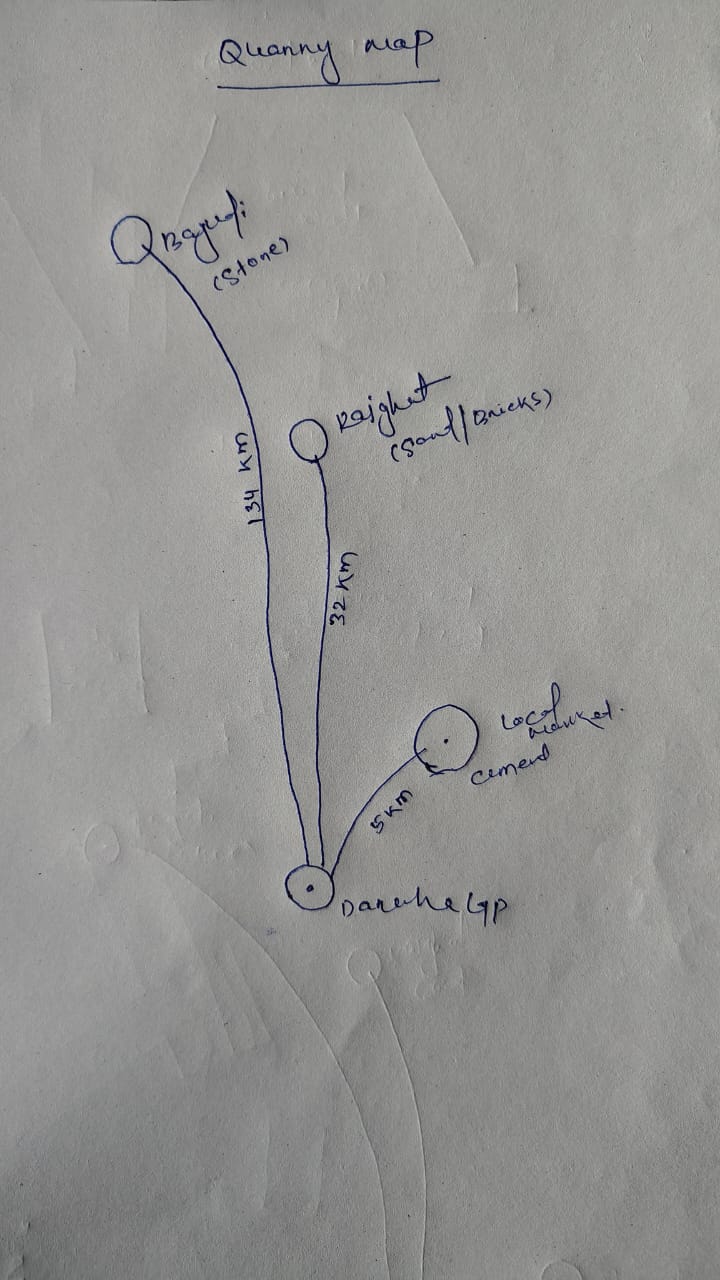 Quarry map
Bajudi
(Stone)
134 km
Rajghat
(Sand/Bricks)
32 km
Local
market.
cement
5 km
GP